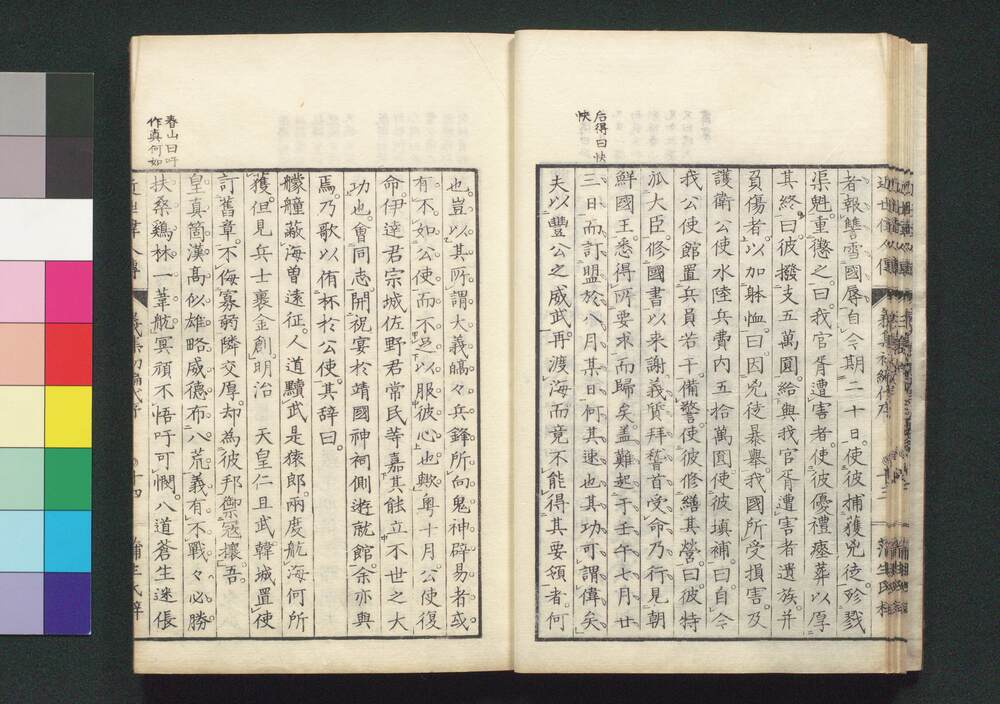 者報讐雪國辱自今期二十日使彼捕獲兇徒殄戮
渠魁重懲之曰我官胥遭害者使彼優禮瘞葬以厚
其終曰彼撥支五萬圓給與我官胥遭害者遺族并
負傷者以加躰恤曰因兇徒暴舉我國所受損害及
護衛公使水陸兵費内五拾萬圓使彼填補曰自今
我公使館置兵員若干備警使彼修繕其營曰彼特
派大臣修國書以来謝義質拜誓首受命乃行見朝
鮮國王悉得所要求而歸矣蓋難起于壬午七月廿
三日而訂盟於八月某日何其速也其功可謂偉矣
夫以豐公之威武再渡海而竟不能得其要領者何
后得曰快
快
也豈以其所謂大義皜々兵鋒所向鬼神辟易者或
有不如公使而不足以服彼心也歟粤十月公使復
命伊達君宗城佐野君常民等嘉其能立不世之大
功也會同志開祝宴於靖國神祠側遊就館余亦與
焉乃歌以侑杯於公使其辞曰
艨艟蔽海曽遠征人道黷武是猿郎兩度航海何所
獲但見兵士裹金創明治 天皇仁且武韓城置使
訂舊章不侮寡弱隣交厚却為彼邦禦冦攘吾
皇真箇漢髙似雄略威德布八荒義有不戰々必勝
扶桑鷄林一葦航冥頑不悟吁可憫八道蒼生迷倀
春山曰吁
作真何如